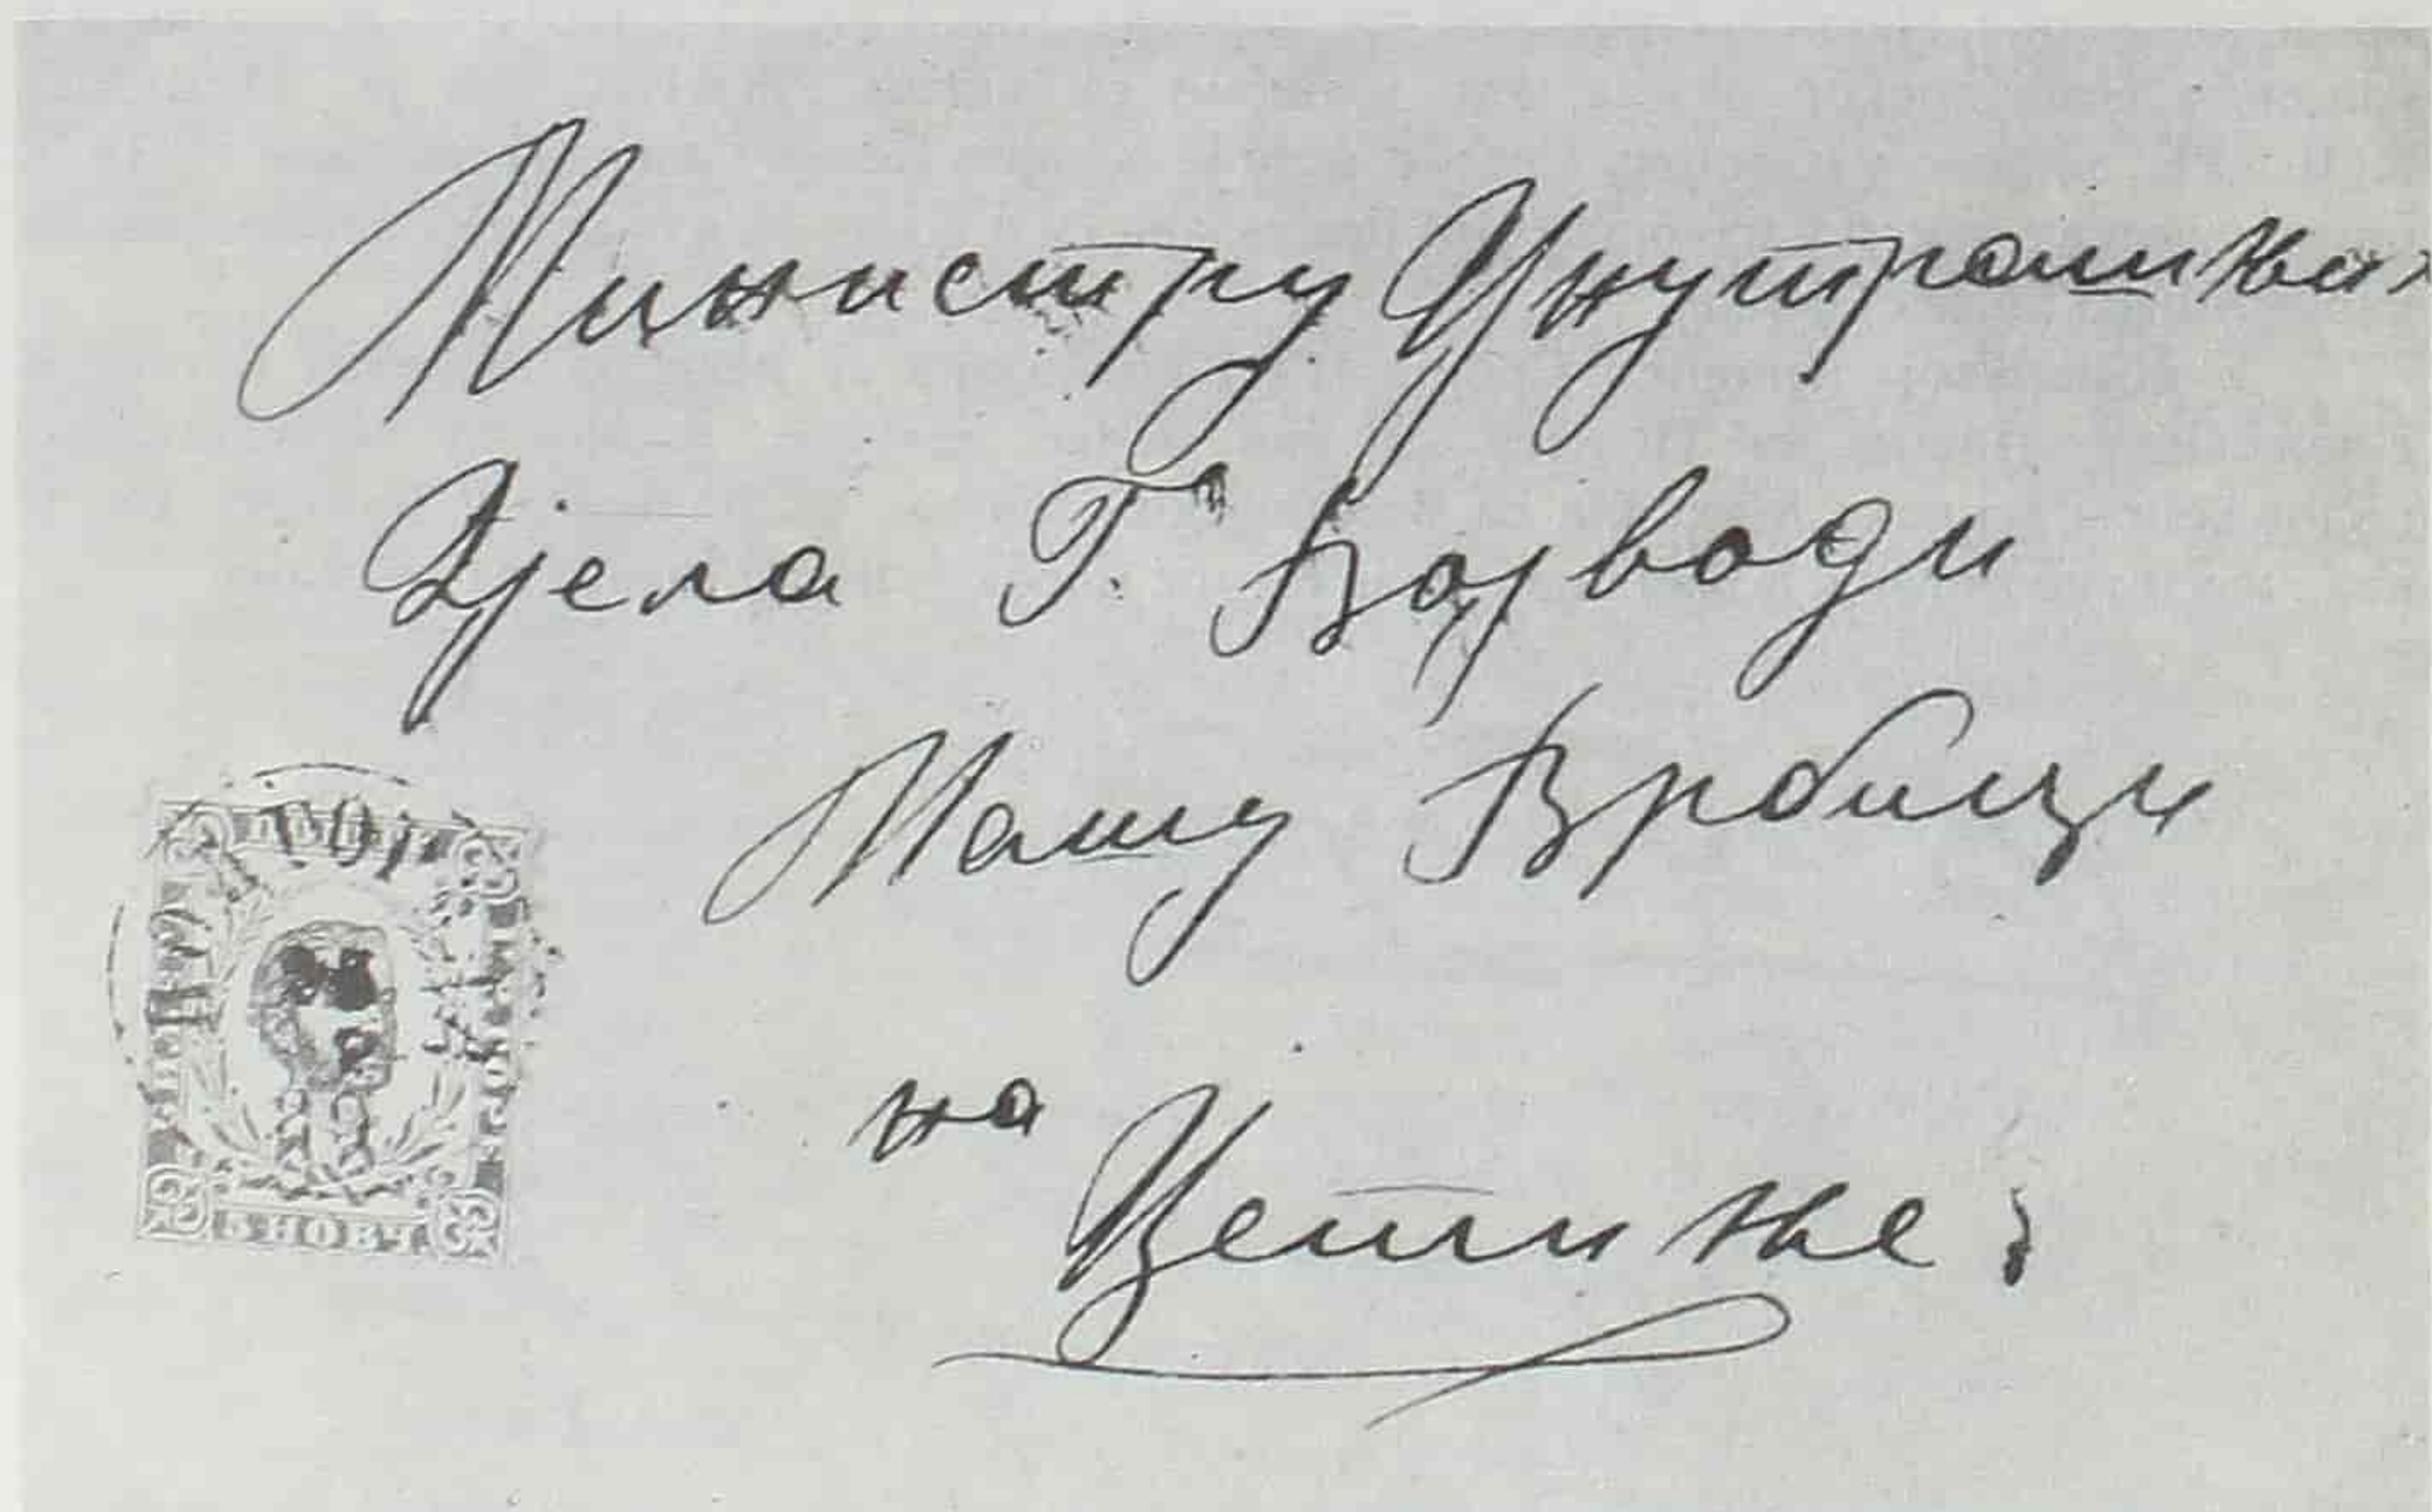 Министру Унутрашњих
Дјела Г. Војводи
Машу Врбици
на
Цетиње.
НОВЧ